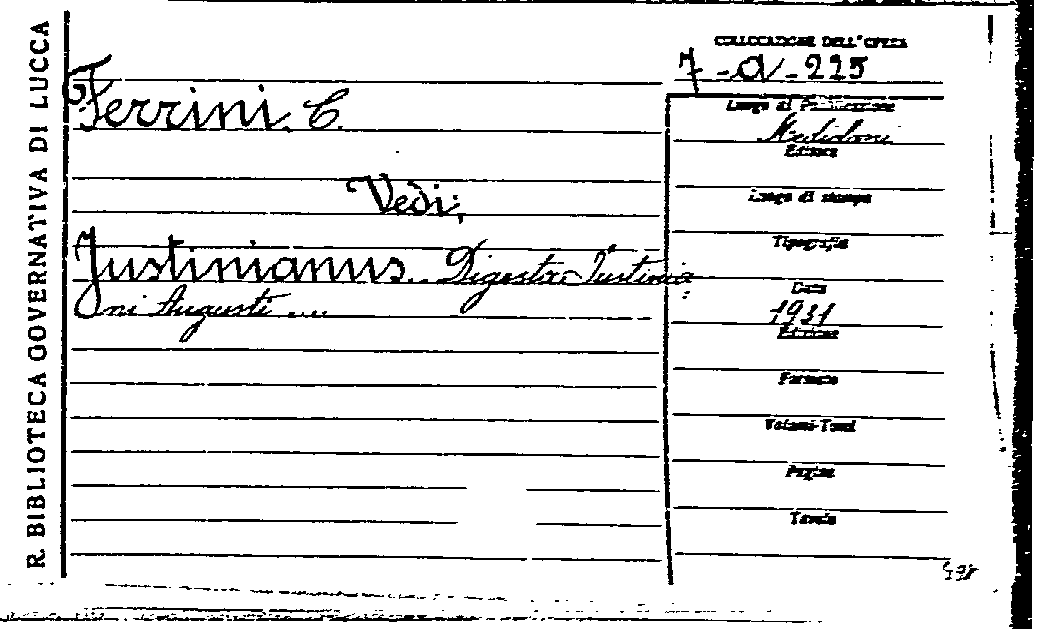 R. BIBLIOTECA GOVERNATIVA DI LUCCA
COLLOCAZIONE DELL'OPERA
7-a-225
Ferrini C.
Vedi:
Justinianus. Digesta Justinia
ni Augusti ....
Luogo di Pubblicazione
Mediolani
Editore
Luogo di stampa
Tipografia
Data
1931
Edizione
Formato
Volumi-Tomi
Pagine
Tavole